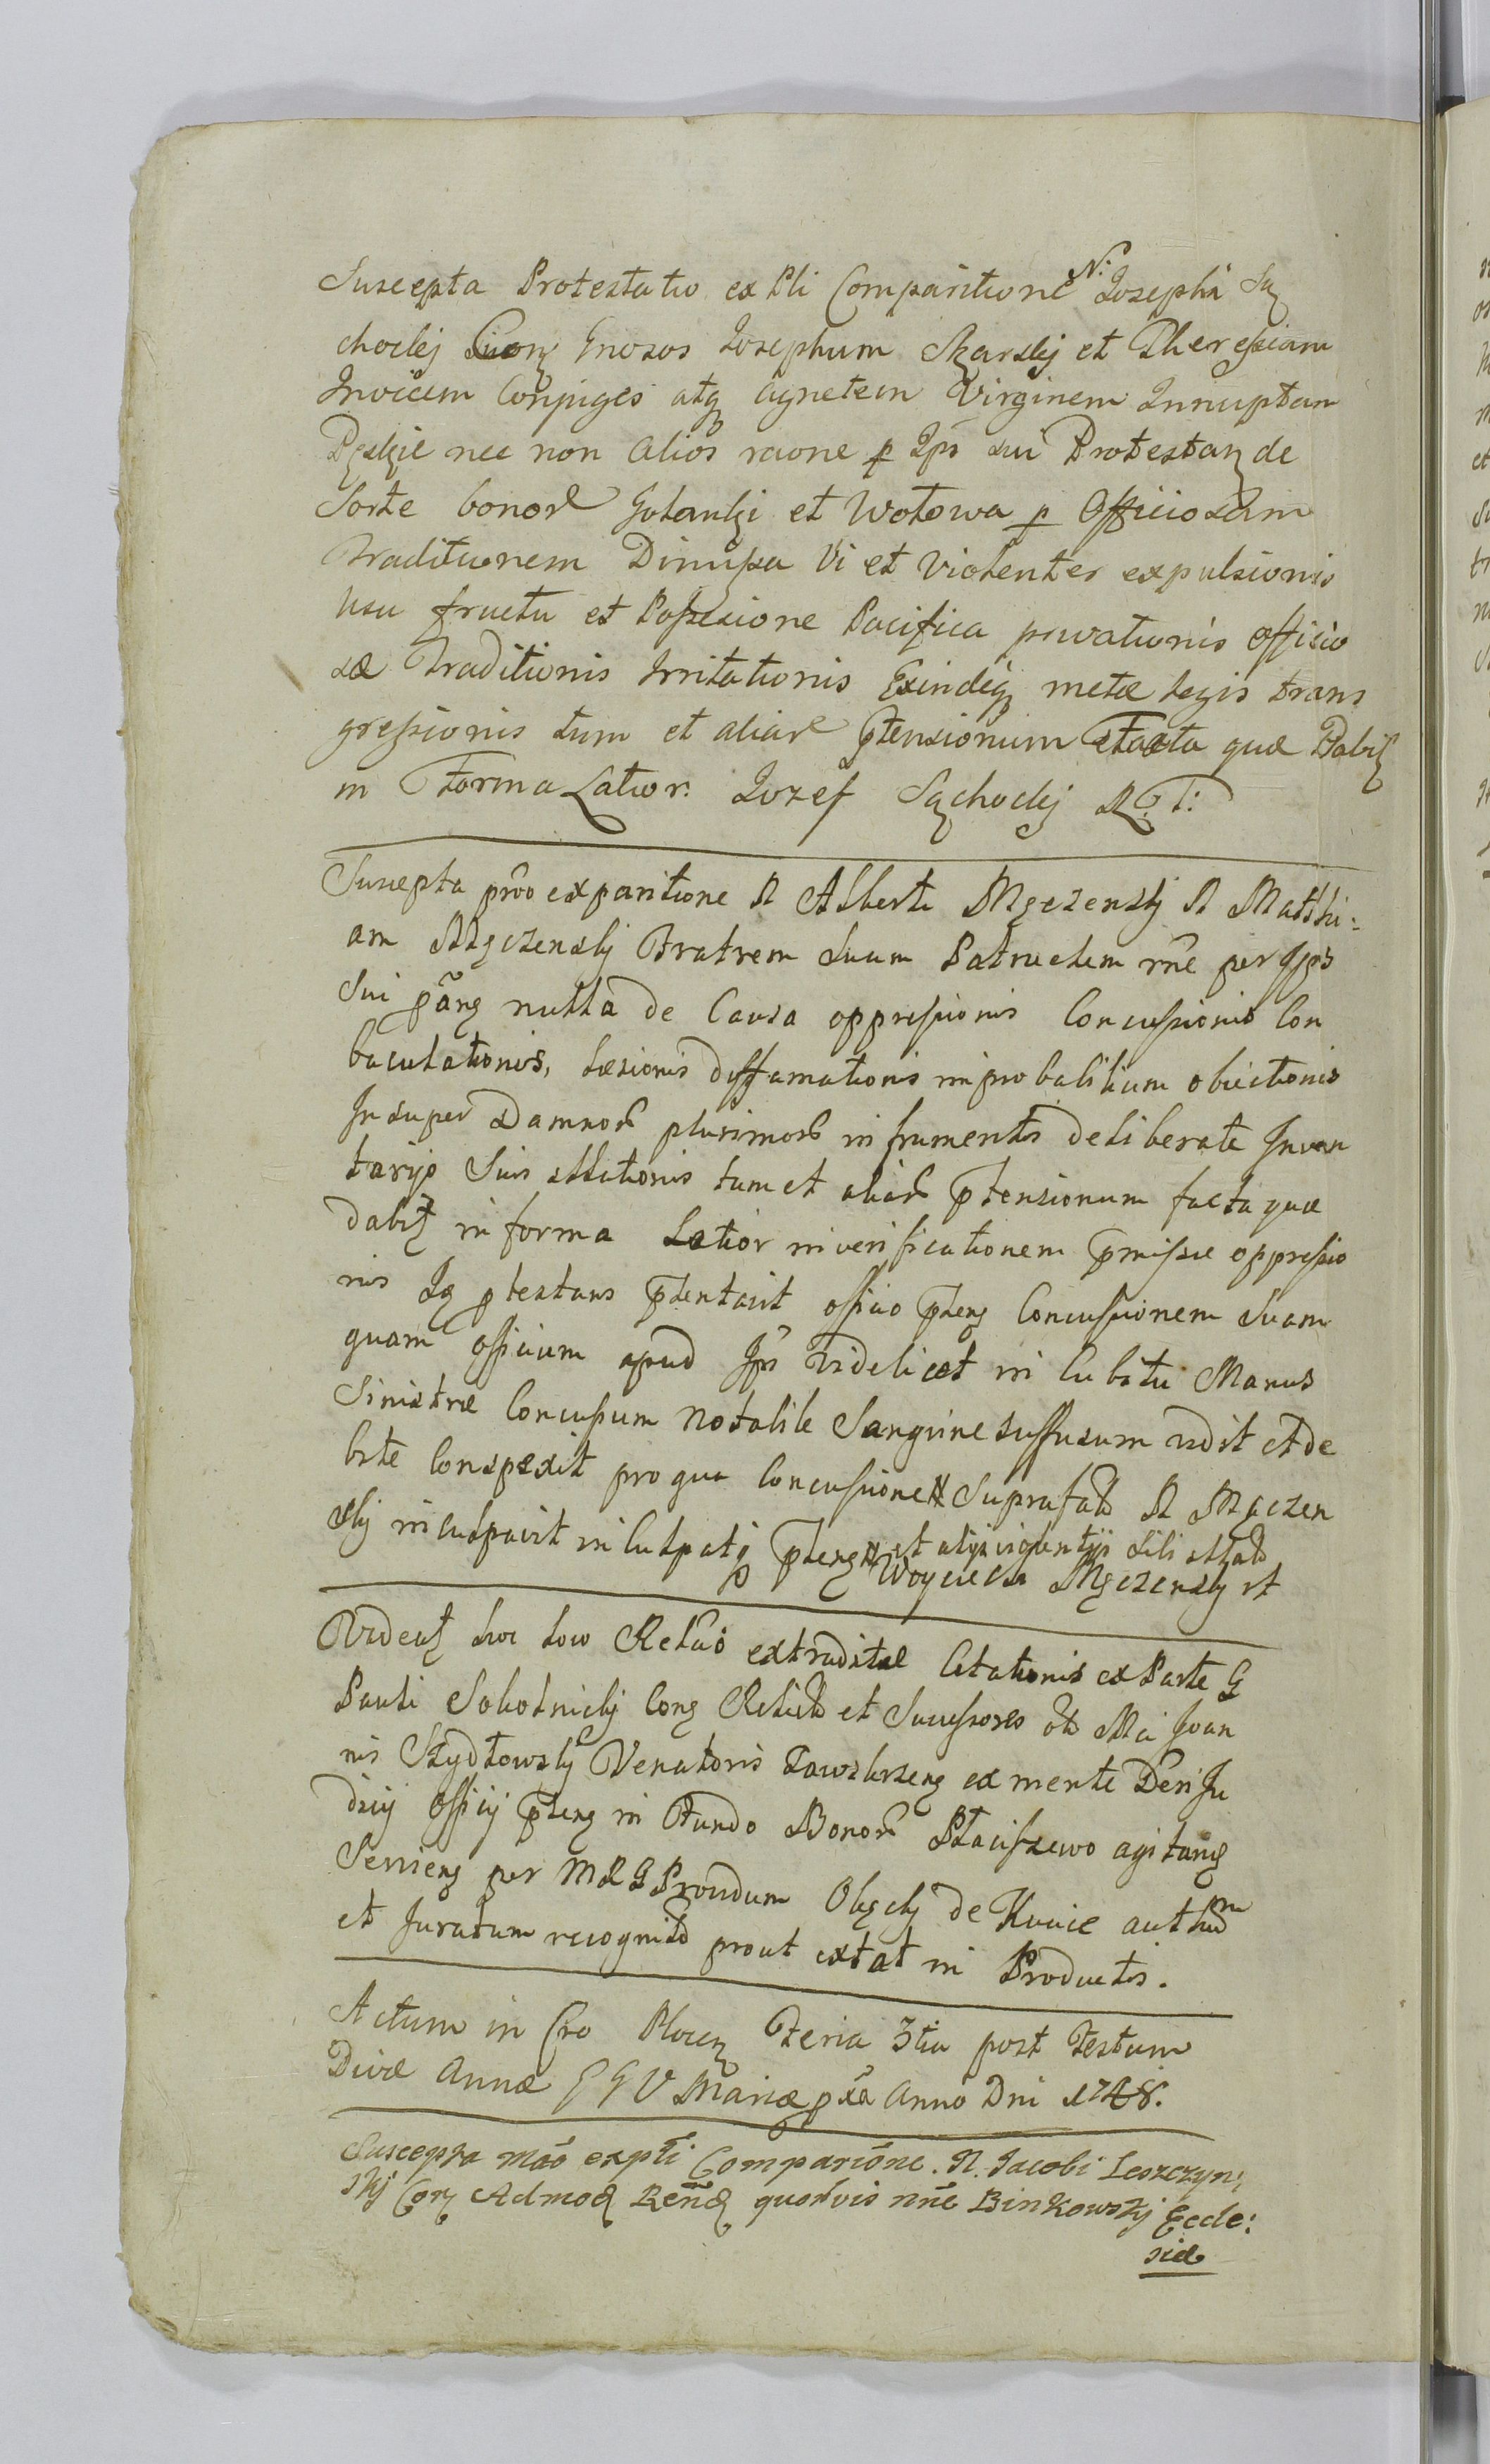 Suscepta Protestatio ex Pli Comparitione N: Josephi Są
chockj Generosos Josephum Skarskj et Theressiam
Invicem Conjuges atq Agnetem Virginem Innuptam
nec non Alios raone p Ips sui Protestan de
Sorte bonor Gulanki et Wolowa p Officiosam
Traditionem Dimissa Vi et Violenter expulsionis
Usu fructu et Possesione Pacifica privationis Officio
sæ Traditionis Irritationis Exindeq metæ legis trans
gressionis tum et aliar ptensionum Facta quæ Dabit
in Forma Latior. Jozef Sąchockj
Suscepta pno ex paritione N Alberti Męczenskj N Matthi:
am Męczenskj Fratrem Suum Patruelem rne per Ips
Sui pang nulla de Causa oppressionis Concussionis Con
baculationis, Læsionis diffamationis improbabilium obiectionis
Insuper Damnor plurimor in frumentis deliberate Inven
tarijs Suis illationis tum et aliar ptensionum facta quæ
dabit in forma Latior in verificationem pmissæ oppressio
nis Iq ptestans ptentavit officio pteng Concussionem Suam
quam officium apud Ips videlicet in Cubitu Manus
Sinistræ Concussum Notabile Sanguine suffusum vidit et de
bite Conspexit pro qua Concussione Suprafat N Męczen
skj inculpavit inculpatq pteng et alijs violentijs sibi illat
Woyciech Męczenskj
Videat hoc loco Relao extraditæ Citationis ex Parte G
Pauli Sokolnickj Cong Relict et Successores ol Mci Joan
nis Szydlowskj Venatoris ex mente Deri Ju
dicij Officij pteng in Fundo Bonor agitang
Servieng per Providum de authm
et Juratum recognit prout extat in Productis.
Actum in Cro Plocen Feria 3tia post Festum
Divæ Annæ G G V Mariæ pxa Anno Dni 1748.
Suscepta mao ex pli Comparione. N. Jacobi Leszczyn;
skj Cor Admod Rend quorvis nne Binkowskj Eccle:
siæ